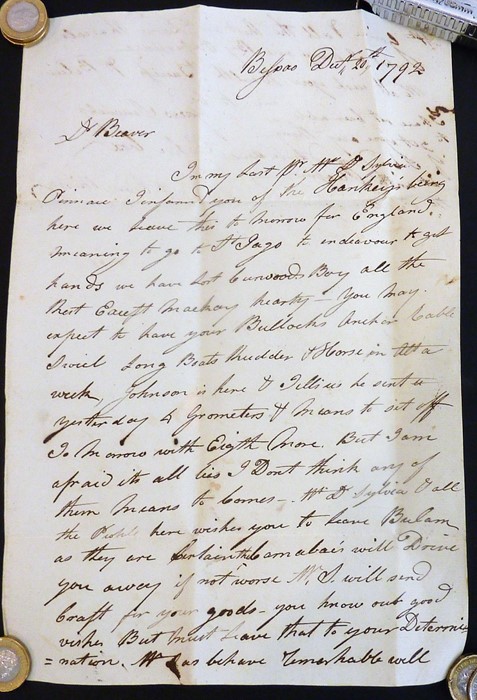 Bissao Decr. 20th 1792
Dr Beaver
In my last pr. Mr. D Sylvia
Pinnace I informd you of the Hankey's being
here we leave this to morrow for England
meaning to go to St Jago to endeavour to get
hands we have lost Curwoods Boy all the
Rest Except Mackay hearty - you May
expect to have your Bullocks Anchor Cable
Long Boats Rudder & Horse in
week, Johnson is here & Tells us he sent u
yesterday 4 Grometers & Means to set off
To Morrow with Eigth More. But I am
afraid its all lies I Dont think any of
them Means to Come - Mr. D. Sylvia & all
the People here wishes you to leave Bulam
as they are Certain the Canabais will Drive
you away if not worse Mr. S. will send
Craft for your goods - you know our good
wishes But Must Leave that to your Determi=
=nation. Mr. has behave Remarkable well